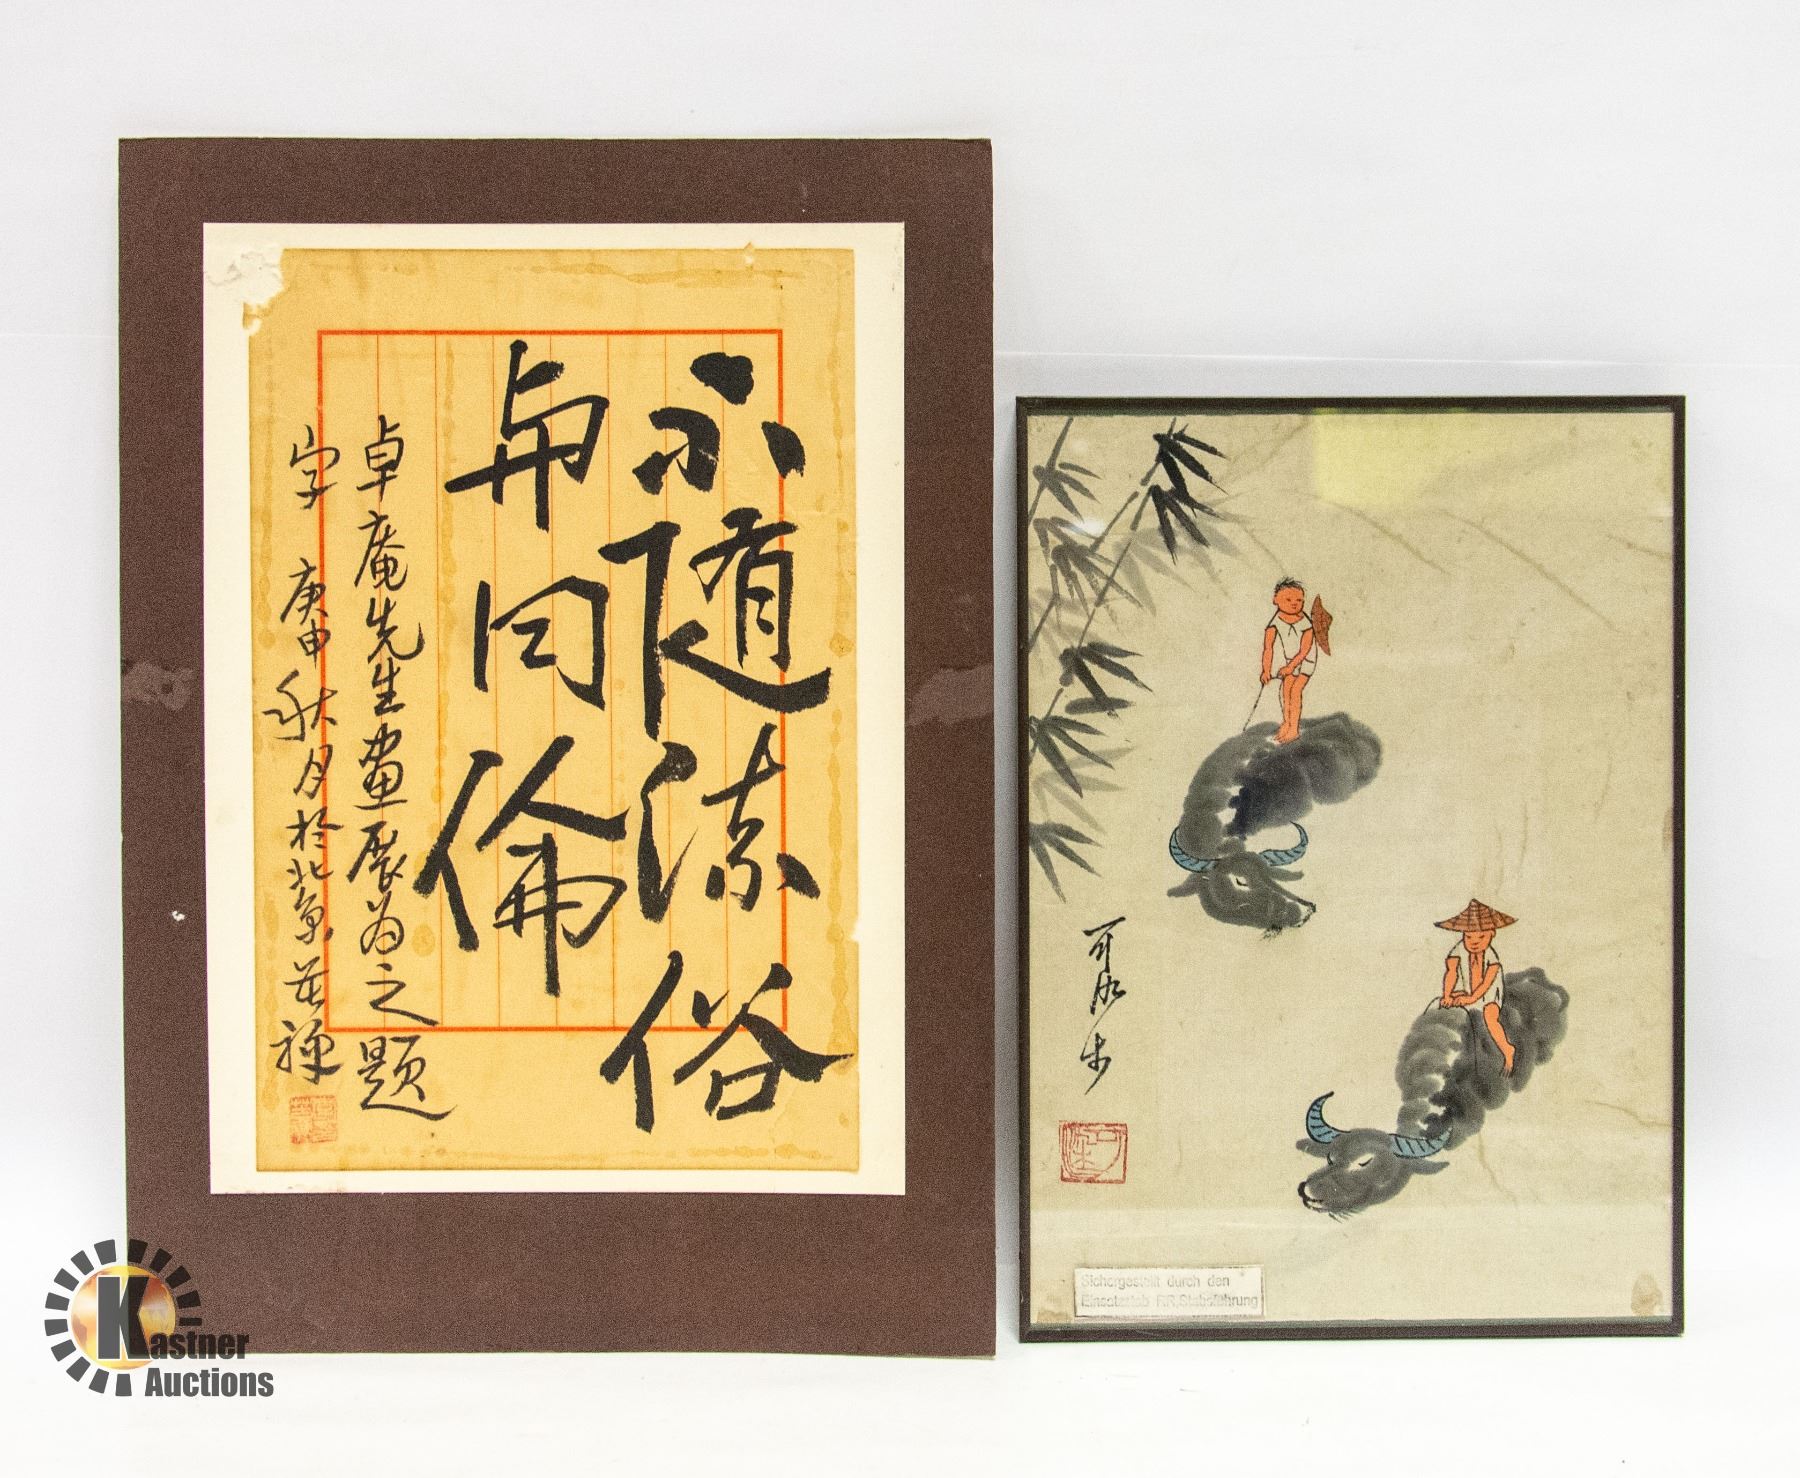 不随流俗
与同伦
卓庵先生画展为之题
字 庚申秋月於北京苦禅
可染
Sichergestellt durch den
Einsatzstab RR,Stabsführung
Kastner
Auctions